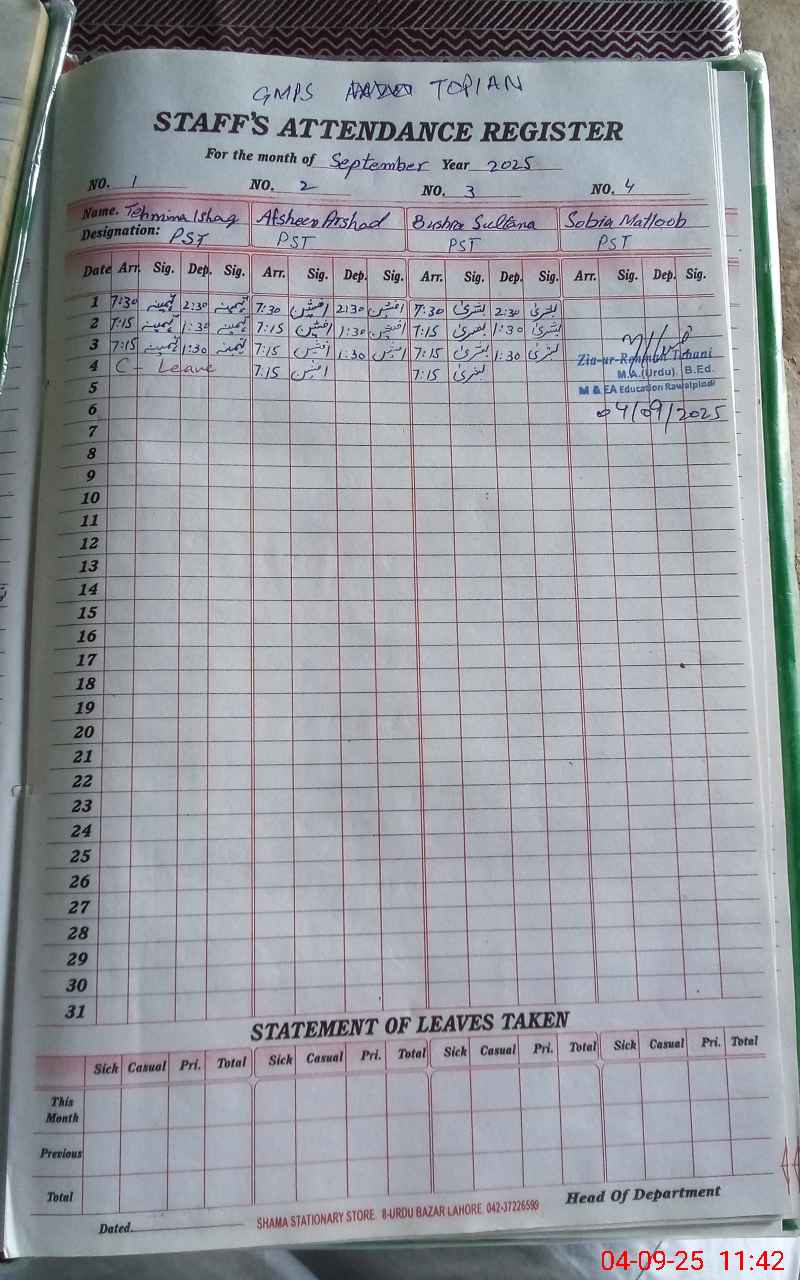 GMPS TOPIAN
STAFF'S ATTENDANCE REGISTER
For the month of September Year 2025
NO. 1 NO. 2 NO. 3 NO. 4
Name. Tehmina Ishaq Afsheen Arshad Bushra Sultana Sobia Matloob
Designation: PST PST PST PST
Date Arr. Sig. Dep. Sig. Arr. Sig. Dep. Sig. Arr. Sig. Dep. Sig. Arr. Sig. Dep. Sig.
1 7:30 تہمینہ 2:30 تہمینہ 7:30 افشین 2:30 افشین 7:30 بشریٰ 2:30 بشریٰ
2 7:15 تہمینہ 1:30 تہمینہ 7:15 افشین 1:30 افشین 7:15 بشریٰ 1:30 بشریٰ
3 7:15 تہمینہ 1:30 تہمینہ 7:15 افشین 1:30 افشین 7:15 بشریٰ 1:30 بشریٰ
Zia-ur-Rehman
4 C- Leave 7:15 افشین 7:15 بشریٰ
M.A.(Urdu) B.Ed.
5
M & EA Education Rawalpindi
6
04/09/2025
7
8
9
10
11
12
13
14
15
16
17
18
19
20
21
22
23
24
25
26
27
28
29
30
31
STATEMENT OF LEAVES TAKEN
Sick Casual Pri. Total Sick Casual Pri. Total Sick Casual Pri. Total Sick Casual Pri. Total
This
Month
Previous
Total
Head Of Department
Dated
SHAMA STATIONARY STORE. 8-URDU BAZAR LAHORE. 042-37226599
04-09-25 11:42